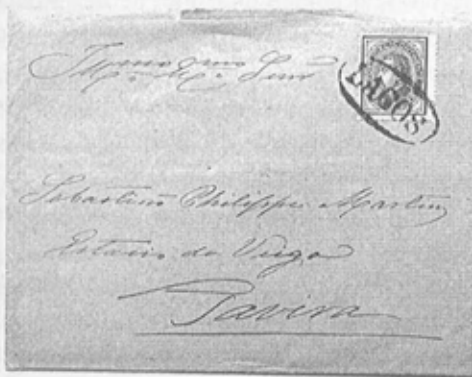 Illmo Exmo Senr
LAGOS
Sebastião Philippe Martins
Estacio da Veiga
Tavira